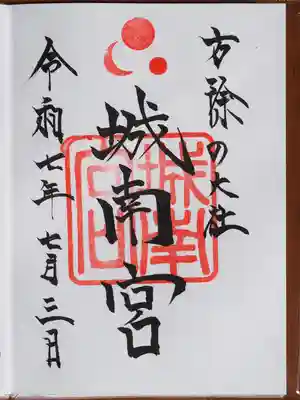 方除の大社
城南宮
令和七年七月三日